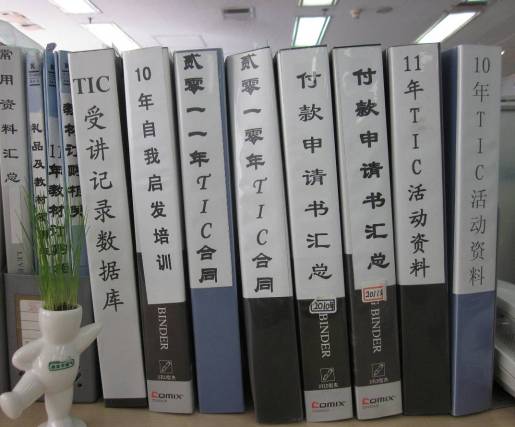 常用资料汇总
礼品及教材
11年教材订购
TIC受讲记录数据库
10年自我启发培训
BINDER
COMIX
贰零一一年TIC合同
贰零一零年TIC合同
付款申请书汇总
2010年
BINDER
COMIX
付款申请书汇总
2011年
BINDER
COMIX
11年TIC活动资料
10年TIC活动资料